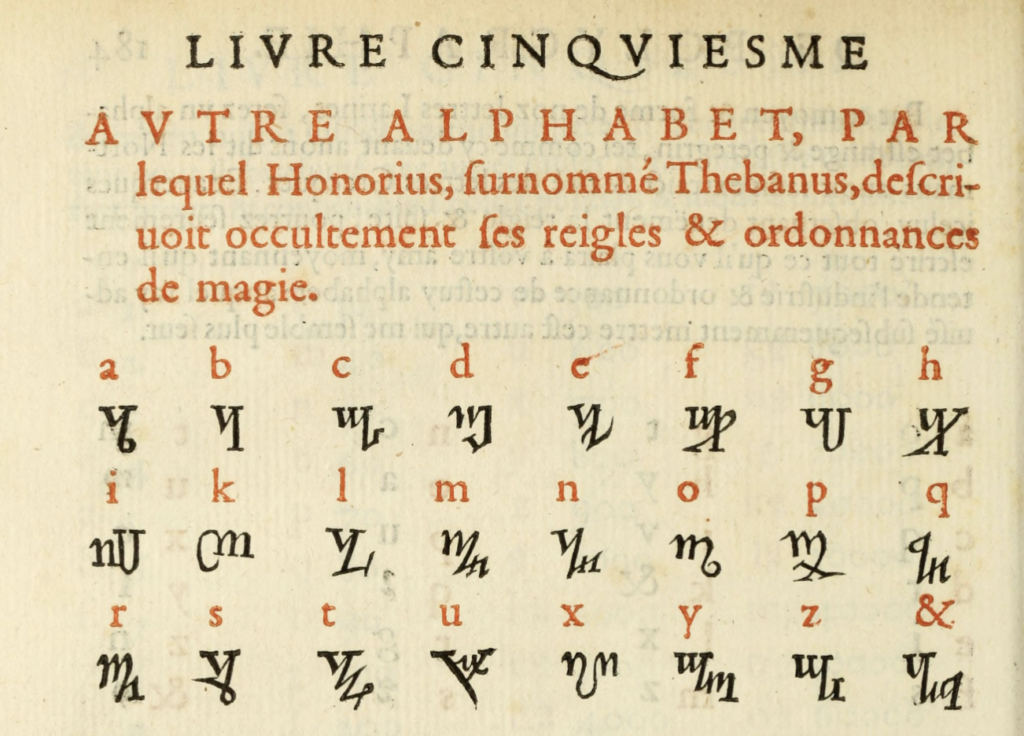 LIVRE CINQVIESME
AVTRE ALPHABET, PAR
lequel Honorius, ſurnommé Thebanus, deſcri-
uoit occultement ſes reigles & ordonnances
de magie.
a b c d e f g h
i k l m n o p q
r s t u x y z &